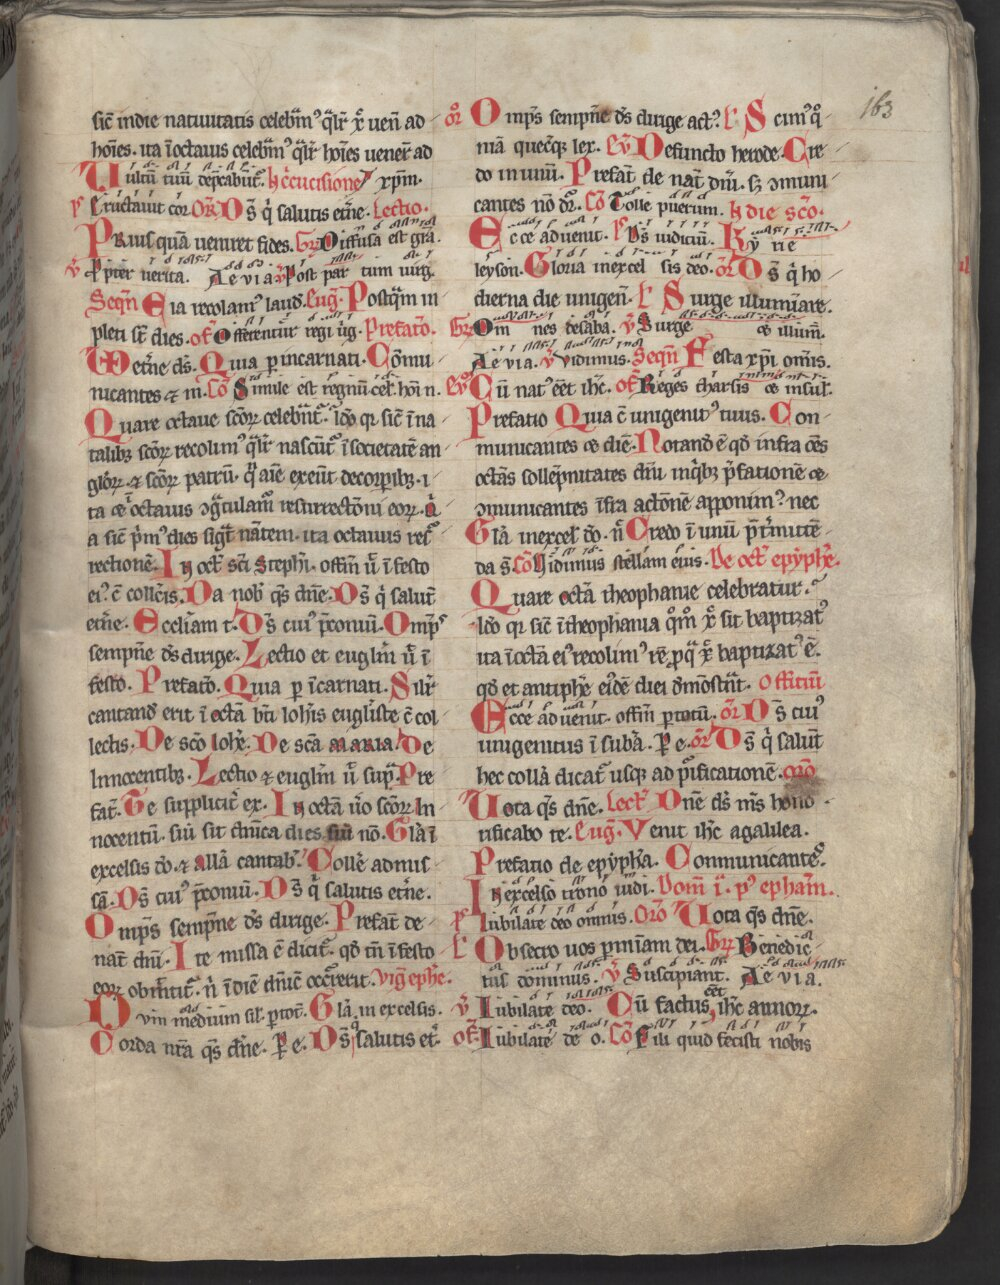 sic̄ in die natiuitatis celebramꝰ qͥlr xp̄ uen̄ ad
hoīes. ita ī octauis celebramꝰ qͥlr hoīes uener̄ ad
Uultū tuū dep̄cabūt᷑. In c̄cūcisione xp̄m.
Eructauit cor Or̄ Ds̄ qͥ salutis et̄ne. Lectio.
Prius quā ueniret fides. Gr̄ Diffusa est gr̄a.
ꝟ Propter uerita. Aeuia ꝟ Post par tum uirḡ.
Seqn̄ Eia recolamꝰ laud. Eug̅. Postqͣm in
pleti st̄ dies. of̄ Offerentur regi uīg. Prefatō.
et̄ne ds̄. Quia ꝑ incarnati. Cōmu
nicantes ⁊ in. Cō Simile est regnū cel. hoī n.
Quare octaue sc̄oꝝ celebn̄t᷑. Ideo qr sic̄ ī na
talibꝫ sc̄oꝝ recolimꝰ qͥlr nascūt᷑ ī societatē an
gl̄oꝝ ⁊ sc̄oꝝ patrū. qͥ aīe exeūt de corꝑibꝫ. i
ta ī octauis resurrectōni eoꝝ.
a sic̄ pͥmꝰ dies sigͣt natēm. ita octauus res
rectionē. In oct̄ sc̄i Stephi. offm̄ ī festo
eiꝰ c̄ collc̄is. Da nob̄ qs̄ dn̄e. Ds̄ qͥ salut̄
et̄ne. Eccl̄iam t. Ds̄ cuiꝰ p̄coniū. Omp̄s
sempn̄e ds̄ dirige. Lectio et eugl̄m ī
festo. Prefatō. Quia ꝑ īcarnati. Silr̄
cantand erit ī octa bt̄i Ioh̄is eugl̄iste c̄ col
lectis. De sc̄o Ioh̄e. De sc̄a maria. De
Innocentibꝫ. Lectio ⁊ eugl̄m supͣ. Pre
fat̄. Te supplicit᷑ ex. In octa uͦo sc̄oꝝ In
nocentū. siū sit dn̄ica dies siū nō. Gl̄a ī
excelsis do. ⁊ all̄a cantab᷑. Couē admis
sā. Ds̄ cuiꝰ p̄coniū. Ds̄ qͥ salutis et̄ne.
Omp̄s sempn̄e ds̄ dirige. Prefat̄ de
nat̄ dn̄i. Ite missa ē dicit᷑. qd̄ tn̄ ī festo
eoꝝ īdiē dn̄ic Vig̅ ephe.
Dum medium sil. ꝑ tot̄. Gl̄a. in excelsis.
Corda nr̄a qs̄ dn̄e. P̄ e. Ds̄ qͥ salutis et̄.
or̄ Omp̄s sempn̄e ds̄ dirige act?. Ł Scimꝰ qͦ
niā quecūqꝫ lex. Eū Defuncto herode. Cre
do in unū. Prefat̄ de nat̄ dn̄i. sꝫ ↄmuni
cantes nō dr̄. Cō Tolle puerum. In die sc̄o.
Ecce aduenit. ps̄ iudiciū. Kyrie
leyson. Gloria inexcel sis deo. or̄ Ds̄ qͥ ho
dierna die unigen̄. Ł Surge illuminare.
Gr̄ Om nes desaba. ꝟ Surge ⁊ illum̄.
Aeuia. ꝟ Vidimus. Seqn̄ Festa xp̄i om̄is.
Eū Cū natꝰ eēt ih̄c. of̄ Reges tharsis ⁊ insul.
Prefatio Quia c̄ unigenitꝰ tuus. Con
municantes ⁊ diē. Notand ē qd̄ infra oēs
octās sollēpnitates dn̄i inqͥbꝫ p̄fationē ⁊
ↄmunicantes īfra actōnē apponimꝰ. nec
Gl̄a inexcel. do. n̄ Credo ī unū
da s̄ Cō Vidimus stellam eius. De oct̄ epyphe.
Quare octā theophanie celebratur.
Ideo qr sic̄ ī theophania qm̄ xp̄ sit baptizat
ita ī octā eiꝰ recolimꝰ xp̄ baptizatꝰ ē.
qd̄ et antiphe eiꝰdē diei dmōstn̄t. Offitiū
Ecce aduenit. offm̄ ꝑ totū. or̄ Ds̄ cuiꝰ
unigenitus ī subā. P̄ e. or̄ Ds̄ qͥ salut̄
hec collā dicat᷑ usqꝫ ad pͥificationē. orō
Uota qs̄ dn̄e. Lect̄. Dn̄e ds̄ ms̄ hono
rificabo te. Eug̅. Venit ih̄c agalilea.
Prefatio de epyph̄a. Conmunicantes.
In excelso trono uidi. Dom̄ ī. pꝰ ephan̄.
ps̄ Iubilate deo omnis. Orō Uota qs̄ dn̄e.
Ł Obsecro uos ꝑ miām dei. Gr̄ Benedic
tus dominus. ꝟ Suscipiant. Aeuia.
ꝟ Iubilate deo. Cū factus eēt ih̄c annoꝝ.
of̄ Iubilate de o. Cō Fili quid fecisti nobis
163